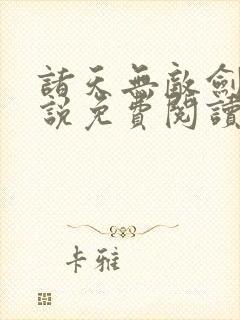 諸天無敵劍
說免費閱讀
卡雅